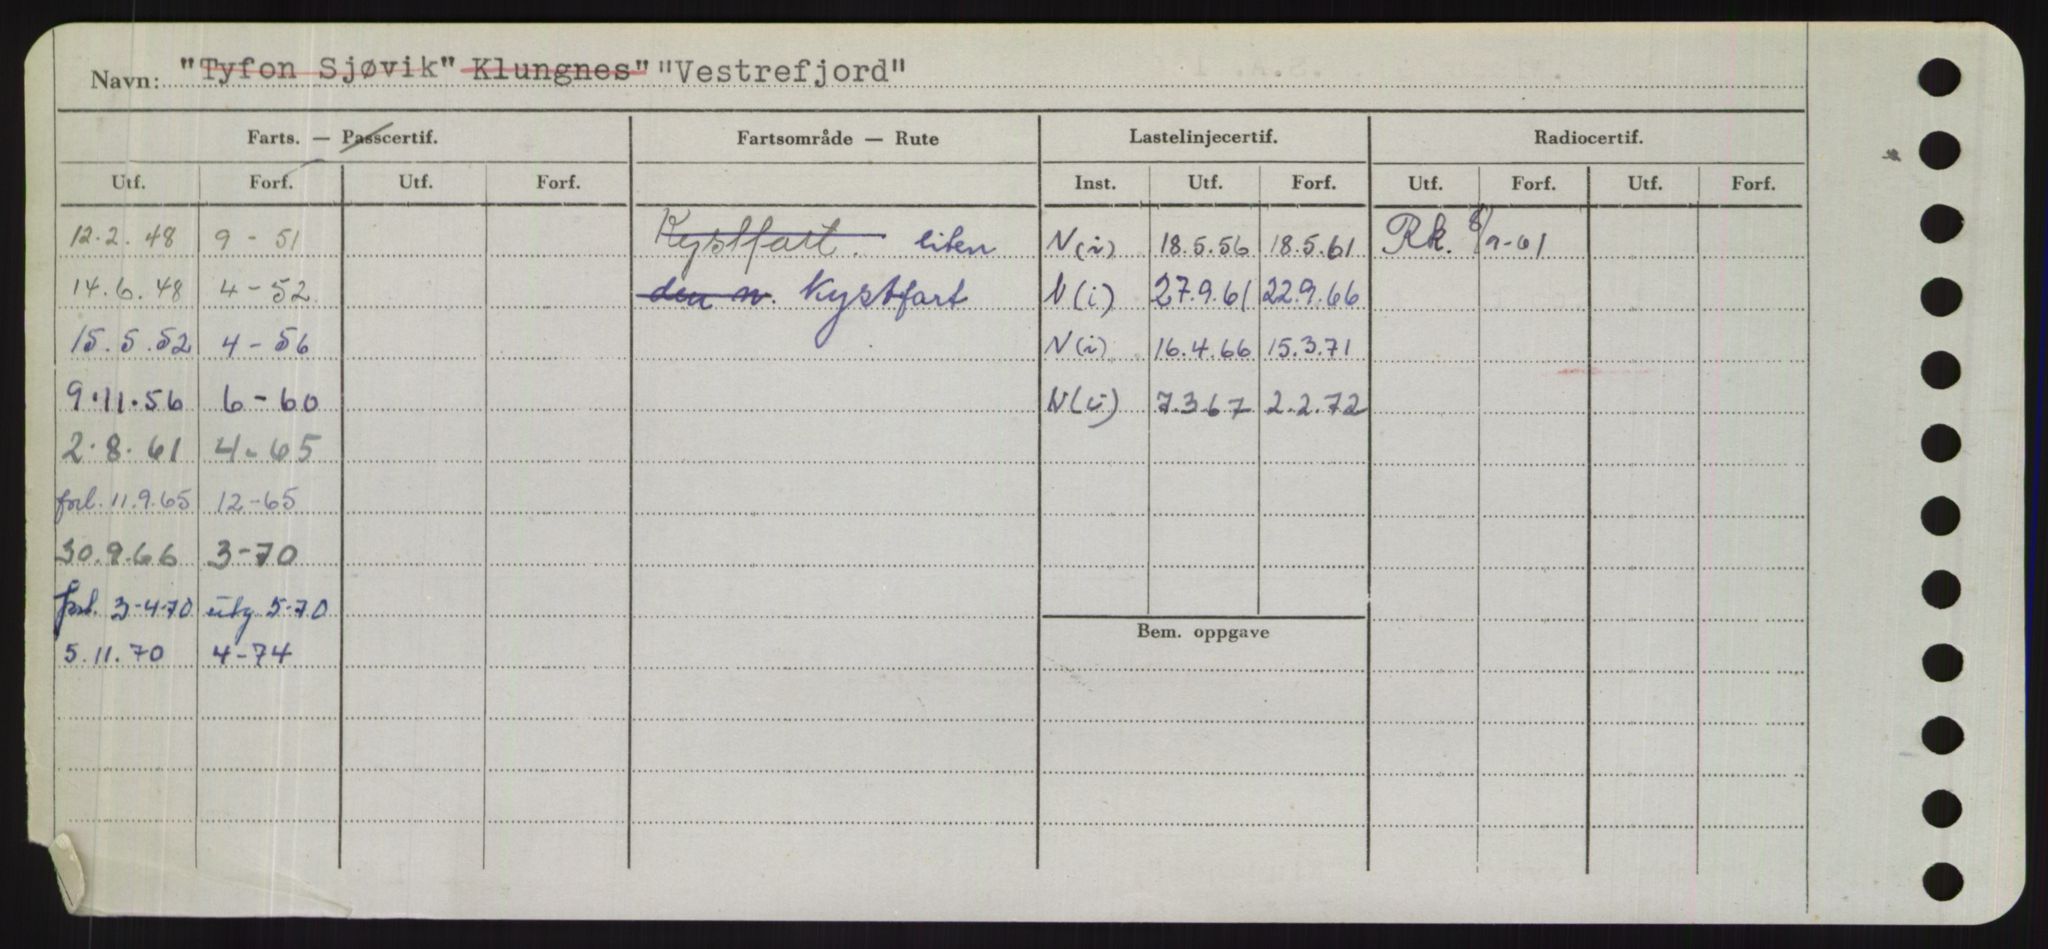 Navn: "Tyfon Sjøvik" Klungnes" "Vestrefjord"
Farts. — Passcertif. Fartsområde — Rute Lastelinjecertif. Radiocertif.
Utf. Forf. Utf. Forf. Inst. Utf. Forf. Utf. Forf. Utf. Forf.
12.2.48 9-51 Kystfart. liten N(i) 18.5.56 18.5.61 Rk. 8/9-61
14.6.48 4-52 den n. Kystfart N(i) 27.9.61 22.9.66
15.5.52 4-56 N(i) 16.4.66 15.3.71
9.11.56 6-60 N(i) 7.3.67 2.2.72
2.8.61 4-65
forl. 11.9.65 12-65
30.9.66 3-70
forl. 3-4-70 utg 5-70
Bem. oppgave
5.11.70 4-74